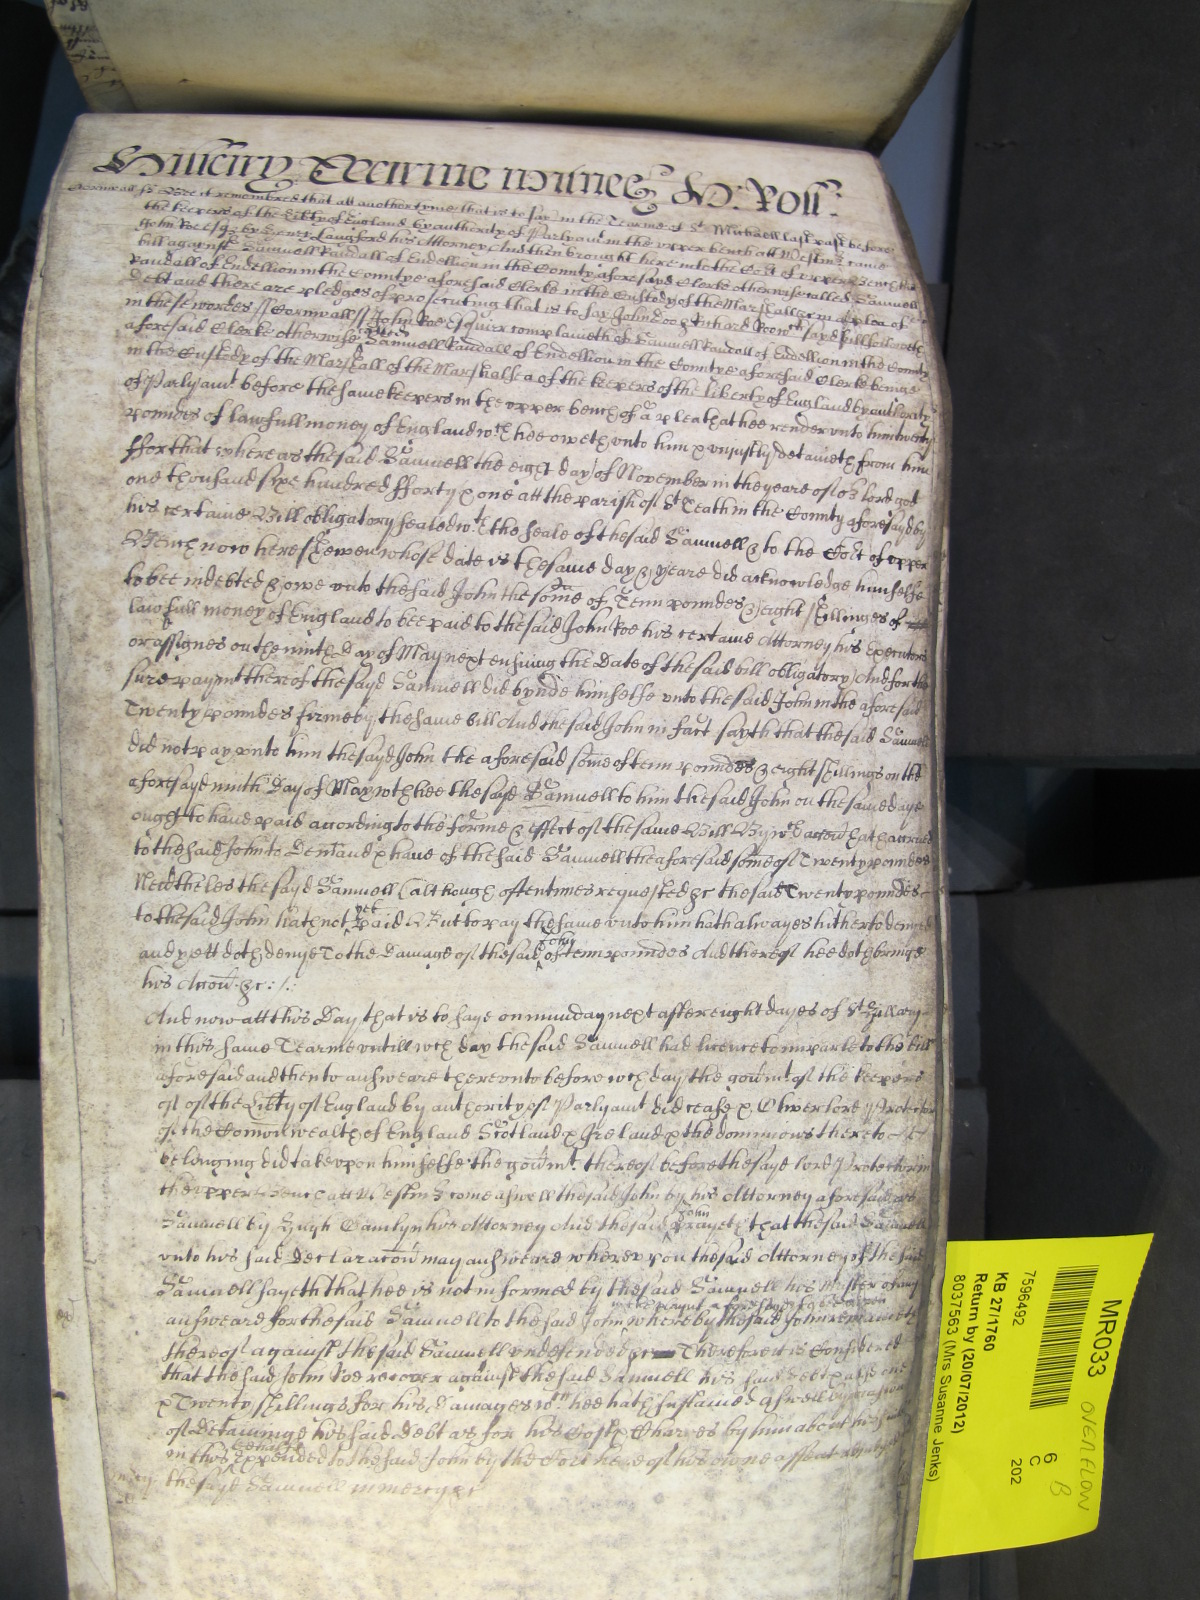 Hillary Tearme 
Cornwall ss Bee it remembred that att another tyme that is to say in the Tearme of St Michaell last past before
the keepers of the Lib'ty of England by authority of Parlyamt in the upper bench att Westm' came
John Roe Esq' by Langford his Attorney And then brought here into the Co'rt of upper Bench his
bill against Samuell Randall of Endellion in the County aforesayd Clerke otherwise called Samuell
Randall of Endellion in the Countye aforesaid Clerke in the Custody of the Marshall &c in a plea of
Debt and there are pledges of prosecuting that is to say John Doo & Richard Roo wch sayd bill followeth
in these wordes ss Cornwall ss John Roe Esquier complaineth of Samuell Randall of Endellion in the County
aforesaid Clerke otherwise called Samuell Randall of Endellion in the Countye aforesaid Clerke beinge
in the Custody of the Marshall of the Marshalsea of the keepers of the liberty of England by authority
of Parlyamt before the same keepers in the upper bench of a plea that hee render unto him twenty
poundes of lawfull money of England wch hee oweth unto him & uniustly detaineth from him
ffor that whereas the said Samuell the eight day of November in the yeare of or lord god
one thousand sixe hundred fforty & one att the parish of St Teath in the County aforesayd by
his certaine Bill obligatory sealed wth the seale of the said Samuell & to the Co'rt of upper
Bench now here shewen whose date is the same day & yeare did acknowledge himselfe
to bee indebted & owe unto the said John the some of Tenn poundes & eight shillinges of
lawfull money of England to bee paid to the said John Roe his certaine Attorney his Executors
or assignes on the ninth Day of May next ensuing the Date of the said bill obligatory And for the
sure paymt thereof the sayd Samuell did bynde himselfe unto the said John in the aforesaid
Twenty poundes firmely by the same bill And the said John in fact sayth that the said Samuell
did not pay unto him the sayd John the aforesaid some of tenn poundes & eight shillings on the
aforesayd ninth Day of May wch hee the sayd Samuell to him the said John on the same daye
ought to haue paid according to the forme & effect of the same Bill By wch acc'on hath accrued
to the said John to Demand & haue of the said Samuell the aforesaid some of Twenty poundes
Neu'theles the sayd Samuell (although oftentimes requested &c the said Twenty poundes
to the said John hath not yet paid But to pay the same unto him hath alwayes hitherto denyed
and yett doth denye To the Damage of the said John of tenn poundes And thereof hee doth bringe
his Acc'on &c :/:
And now att this Day that is to saye on munday next after eight dayes of St Hillary
in this same Tearme untill wch day the said Samuell had licence to imparle to the bill
aforesaid and then to answeare thereunto before wch day the gou'mt of the keepers
of of the Lib'ty of England by authority of Parlyamt did cease & Oliver lord Protector
of the Com'onwealth of England Scotland & Ireland & the dominions thereto
belonging did take upon himselfe the gou'mt thereof before the sayd lord Protector in
the upper bench att Westm' come aswell the said John by his Attorney aforesaid as
Samuell by Hugh Camlyn his Attorney And the said John prayeth that the said Samuell
unto his said Declarac'on may answeare whereupon the said Attorney of the said
Samuell sayeth that hee is not informed by the said Samuell his Master of any
answeare for the said Samuell to the said John whereby the said John remaineth
thereof against the said Samuell undefended &c Therefore it is Considered
that the said John Roe recover against the said Samuell his said Debt
& Twenty shillings for his Damages wch hee hath sustained aswell by reason
of Detaininge his said Debt as for his Costs & Charges by him about his suit
in this behalfe expended to the said John by the Co'rt here of his owne assent
the sayd Samuell in mercy &c
MR033
OVERFLOW
B
6
C
202
7596492
KB 27/1760
Return by (20/07/2012)
8037563 (Mrs Susanne Jenks)